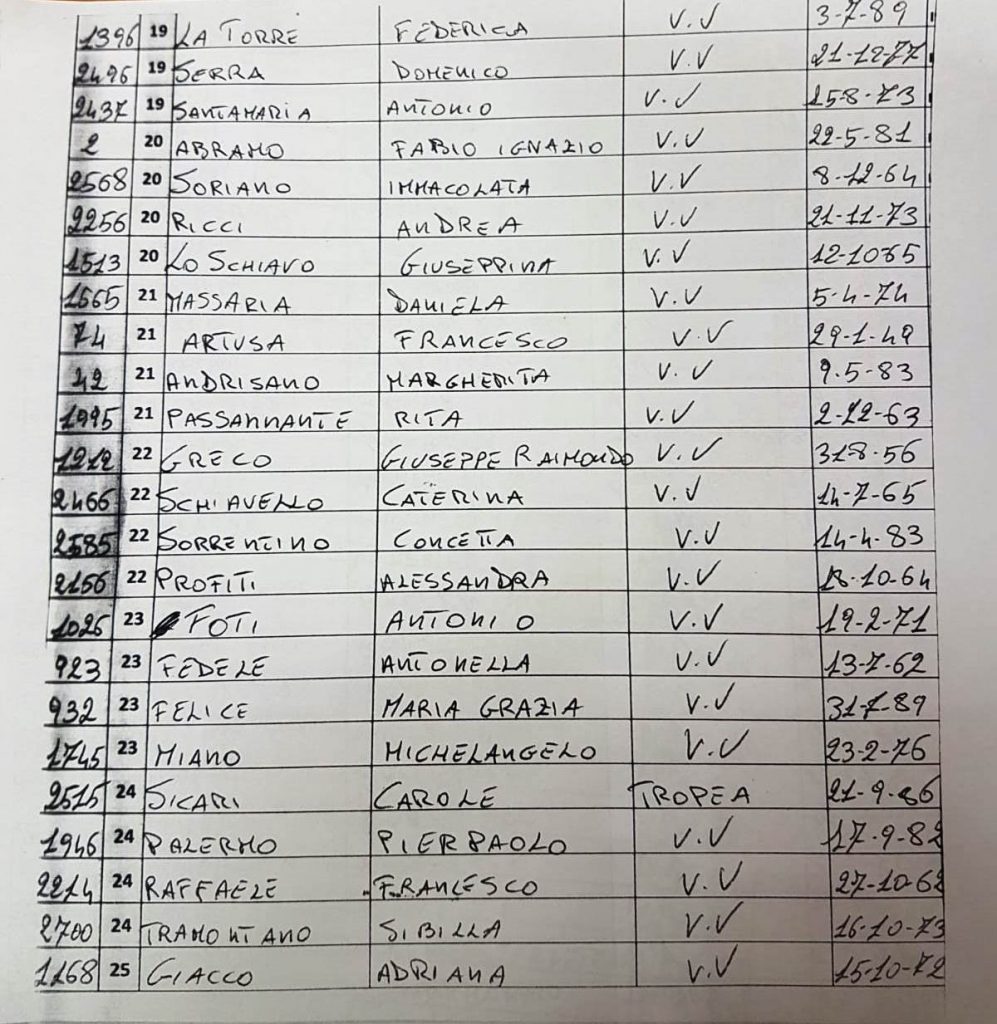 1396 19 LA TORRE FEDERICA V.V 3-7-89
2496 19 SERRA DOMENICO V.V 21-12-77
2437 19 SANTAMARIA ANTONIO V.V 15-8-73
2 20 ABRAMO FABIO IGNAZIO V.V 22-5-81
2568 20 SORIANO IMMACOLATA V.V 8-12-64
2256 20 RICCI ANDREA V.V 21-11-73
1513 20 LO SCHIAVO GIUSEPPINA V.V 12-1065
1565 21 MASSARIA DANIELA V.V 5-4-74
74 21 ARTUSA FRANCESCO V.V 29-1-49
42 21 ANDRISANO MARGHERITA V.V 9.5-83
1995 21 PASSANNANTE RITA V.V 2-12-63
1212 22 GRECO GIUSEPPE RAIMONDO V.V 318-56
2466 22 SCHIAVELLO CATERINA V.V 14-7-65
2585 22 SORRENTINO CONCETTA V.V 14-4-83
2156 22 PROFITI ALESSANDRA V.V 13-10-64
1026 23 FOTI ANTONIO V.V 19-2-71
923 23 FEDELE ANTONELLA V.V 13-7-62
932 23 FELICE MARIA GRAZIA V.V 31-7-89
1745 23 MIANO MICHELANGELO V.V 23-2-76
2515 24 SICARI CAROLE TROPEA 21-9-86
1946 24 PALERMO PIERPAOLO V.V 17-9-82
2214 24 RAFFAELE FRANCESCO V.V 27-10-62
2700 24 TRAMONTANO SIBILLA V.V 16-10-73
1168 25 GIACCO ADRIANA V.V 15-10-72